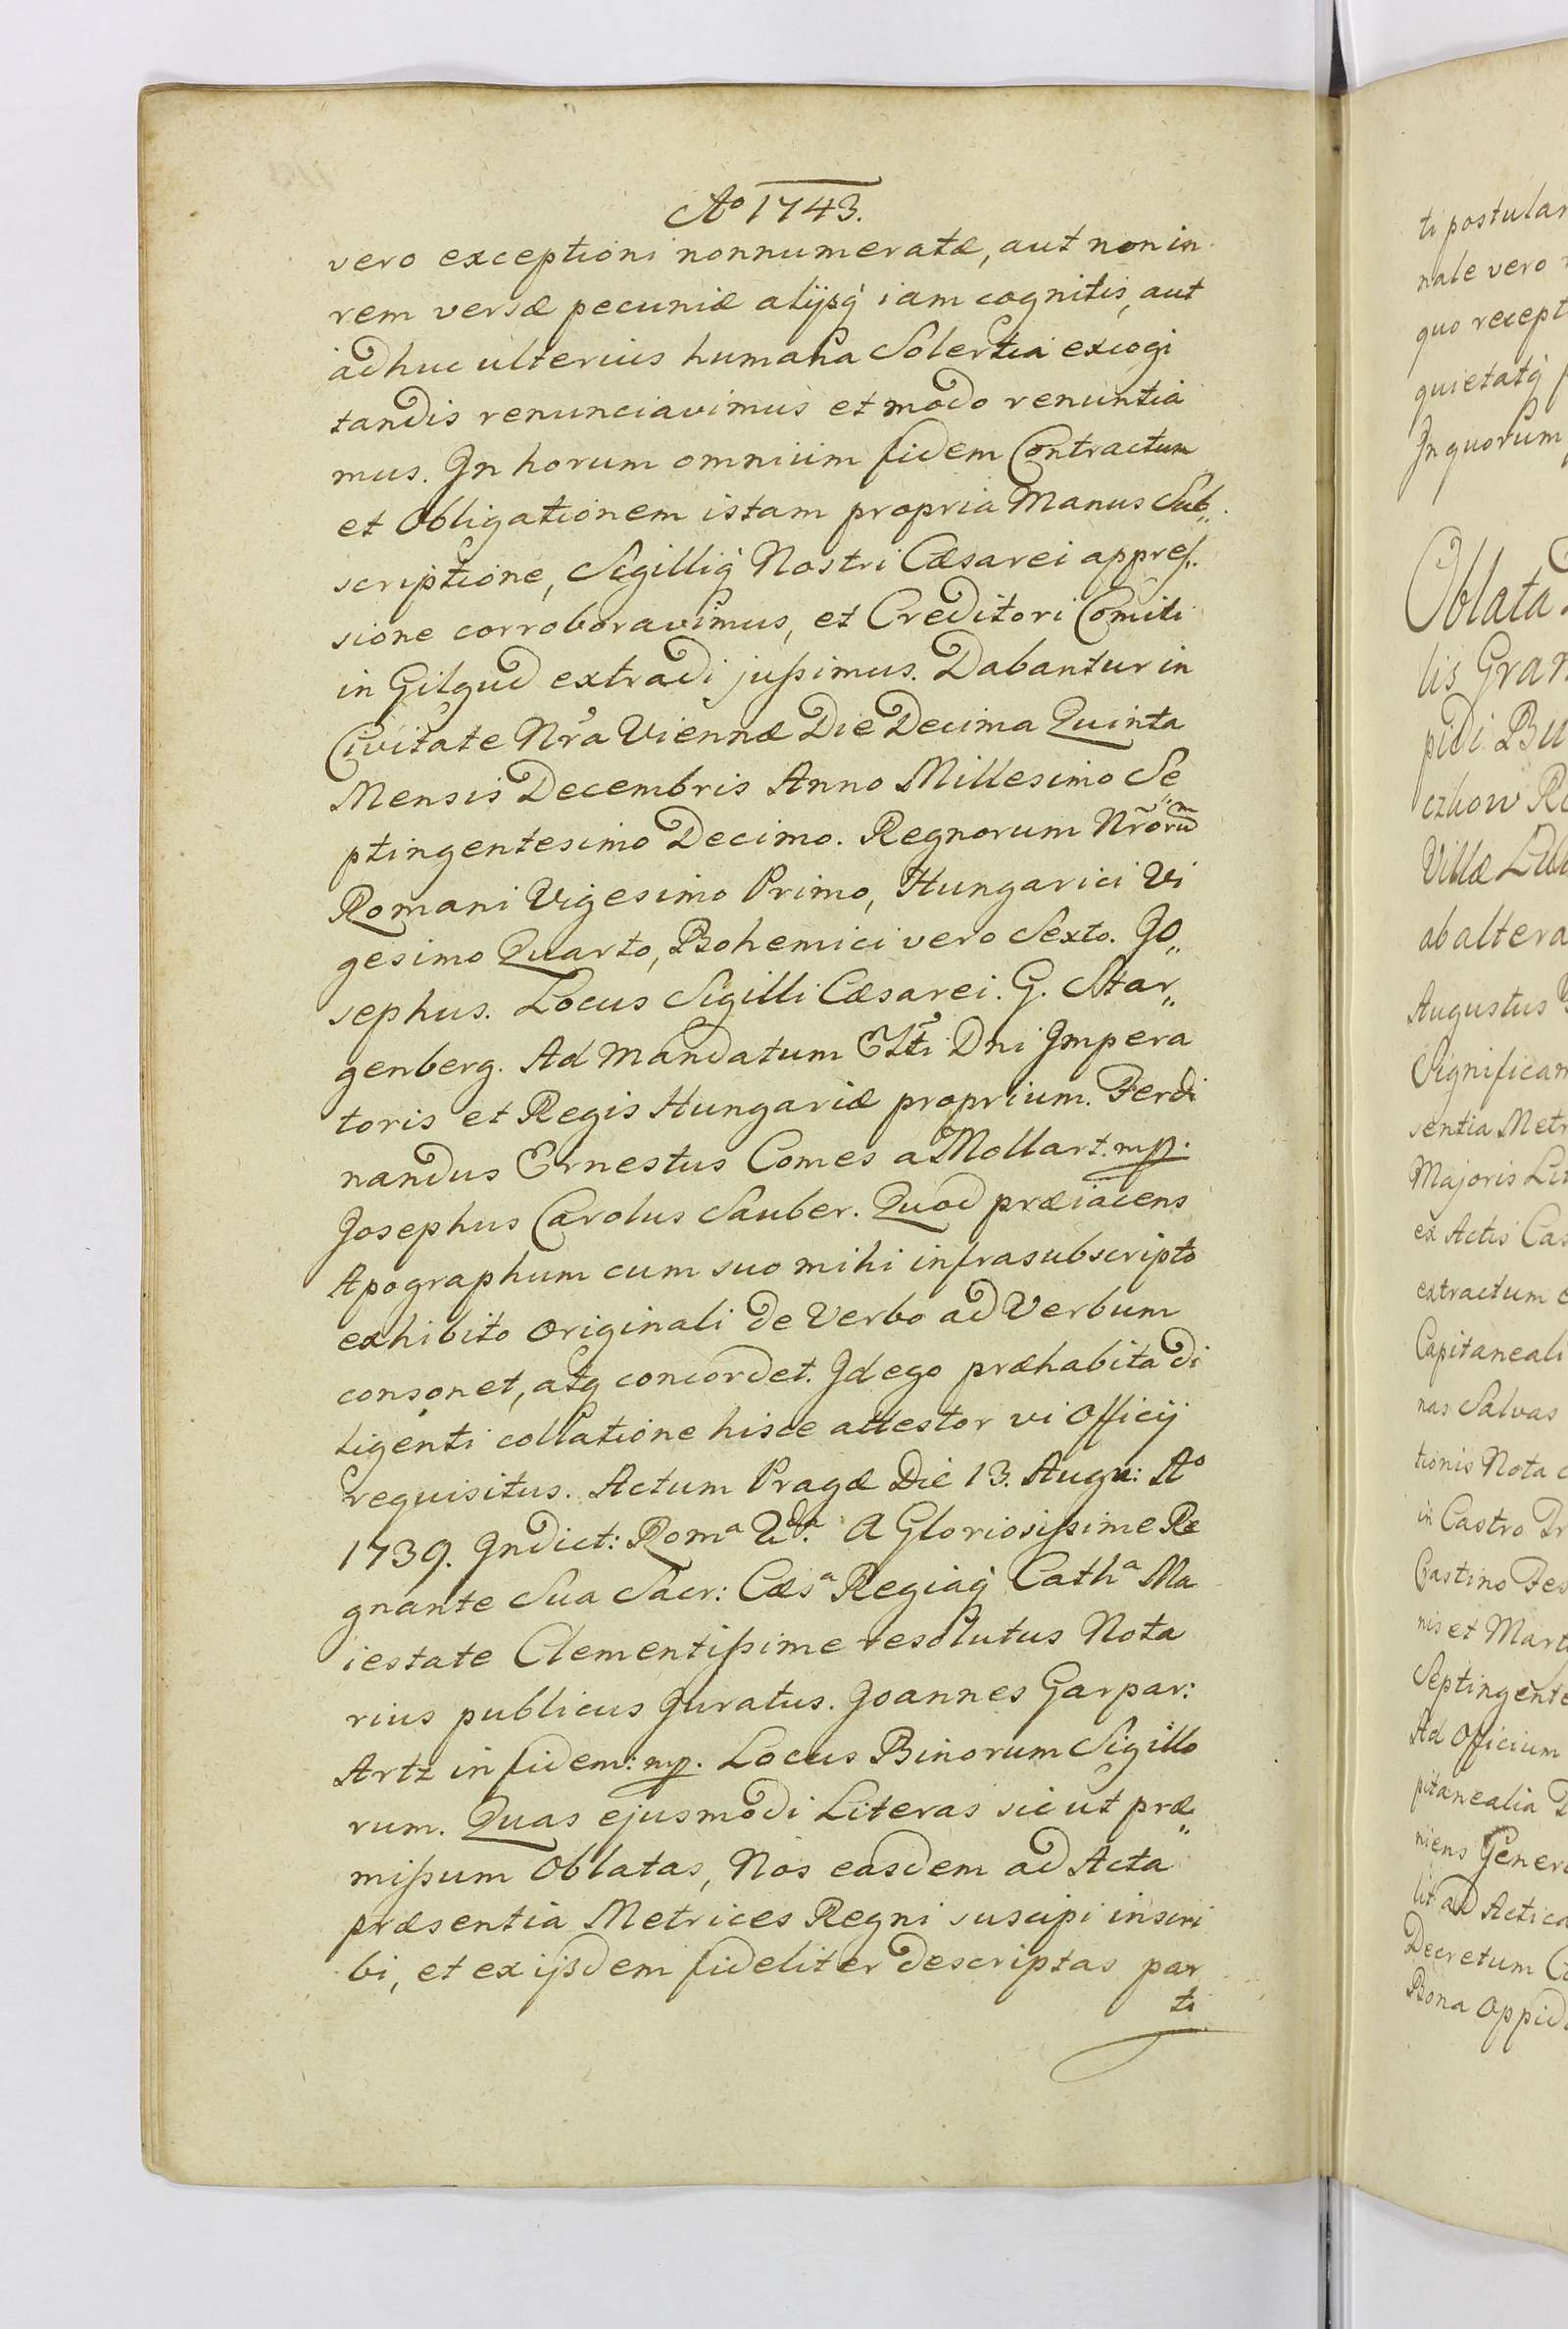 Ao 1743.
vero exceptioni nonnumeratæ, aut non in
rem versæ pecuniæ alijsq́ iam cognitis, aut
adhuc ulterius humana Solertia excogi
tandis renunciavimus et modo renuntia
mus. In horum omnium fidem Contractum
et Obligationem istam propria Manus Sub„
scriptione, Sigilliq́ Nostri Cæsarei appres„
sione corroboravimus, et Creditori Comiti
in Gilgud extradi jussimus. Dabantur in
Civitate Nrã Viennæ Die Decima Quinta
Mensis Decembris Anno Millesimo Se„
ptingentesimo Decimo. Regnorum Nrõrum
Romani Vigesimo Primo, Hungarici Vi
gesimo Quarto, Bohemici vero Sexto. Jo„
sephus. Locus Sigilli Cæsarei. G. Star„
genberg. Ad Mandatum Elti Dni Impera
toris et Regis Hungariæ proprium. Ferdi
nandus Ernestus Comes a Mollart. mp.
Josephus Carolus Sauber. Quod præiacens
Apographum cum suo mihi infrasubscripto
exhibito originali de Verbo ad Verbum
consonet, atq concordet. Id ego præhabita di
ligenti collatione hisce attestor vi Officij
requisitus. Actum Pragæ Die 13. Augu: Ao
1739. Indict: Roma 2da. A Gloriosissime Re
gnante Sua Sacr: Cæsa Regiaq́ Catha Ma
iestate Clementissime resolutus Nota
rius publicus Juratus. Joannes Garpar:
Artz in fidem: mp. Locus Binorum Sigillo
rum. Quas ejusmodi Literas sic ut præ„
missum Oblatas, Nos easdem ad Acta
præsentia Metrices Regni suscipi inscri
bi, et ex ijsdem fideliter descriptas par
ti
ti postular
nale vero
quo recept
quietatq́
In quorum
Oblata
lis Gran
pidi Bu
czhow Re
Villæ Lub
ab altera
Augustus
Significam
sentia Metr
Majoris Lit
ex Actis Cas
extractum
Capitaneali
nas Salvas
tionis Nota
in Castro Tr
Crastino Fes
nis et Mart
Septingente
Ad Officium
pitanealia
niens Genero
lit ad Actica
Decretum
Bona Oppidi